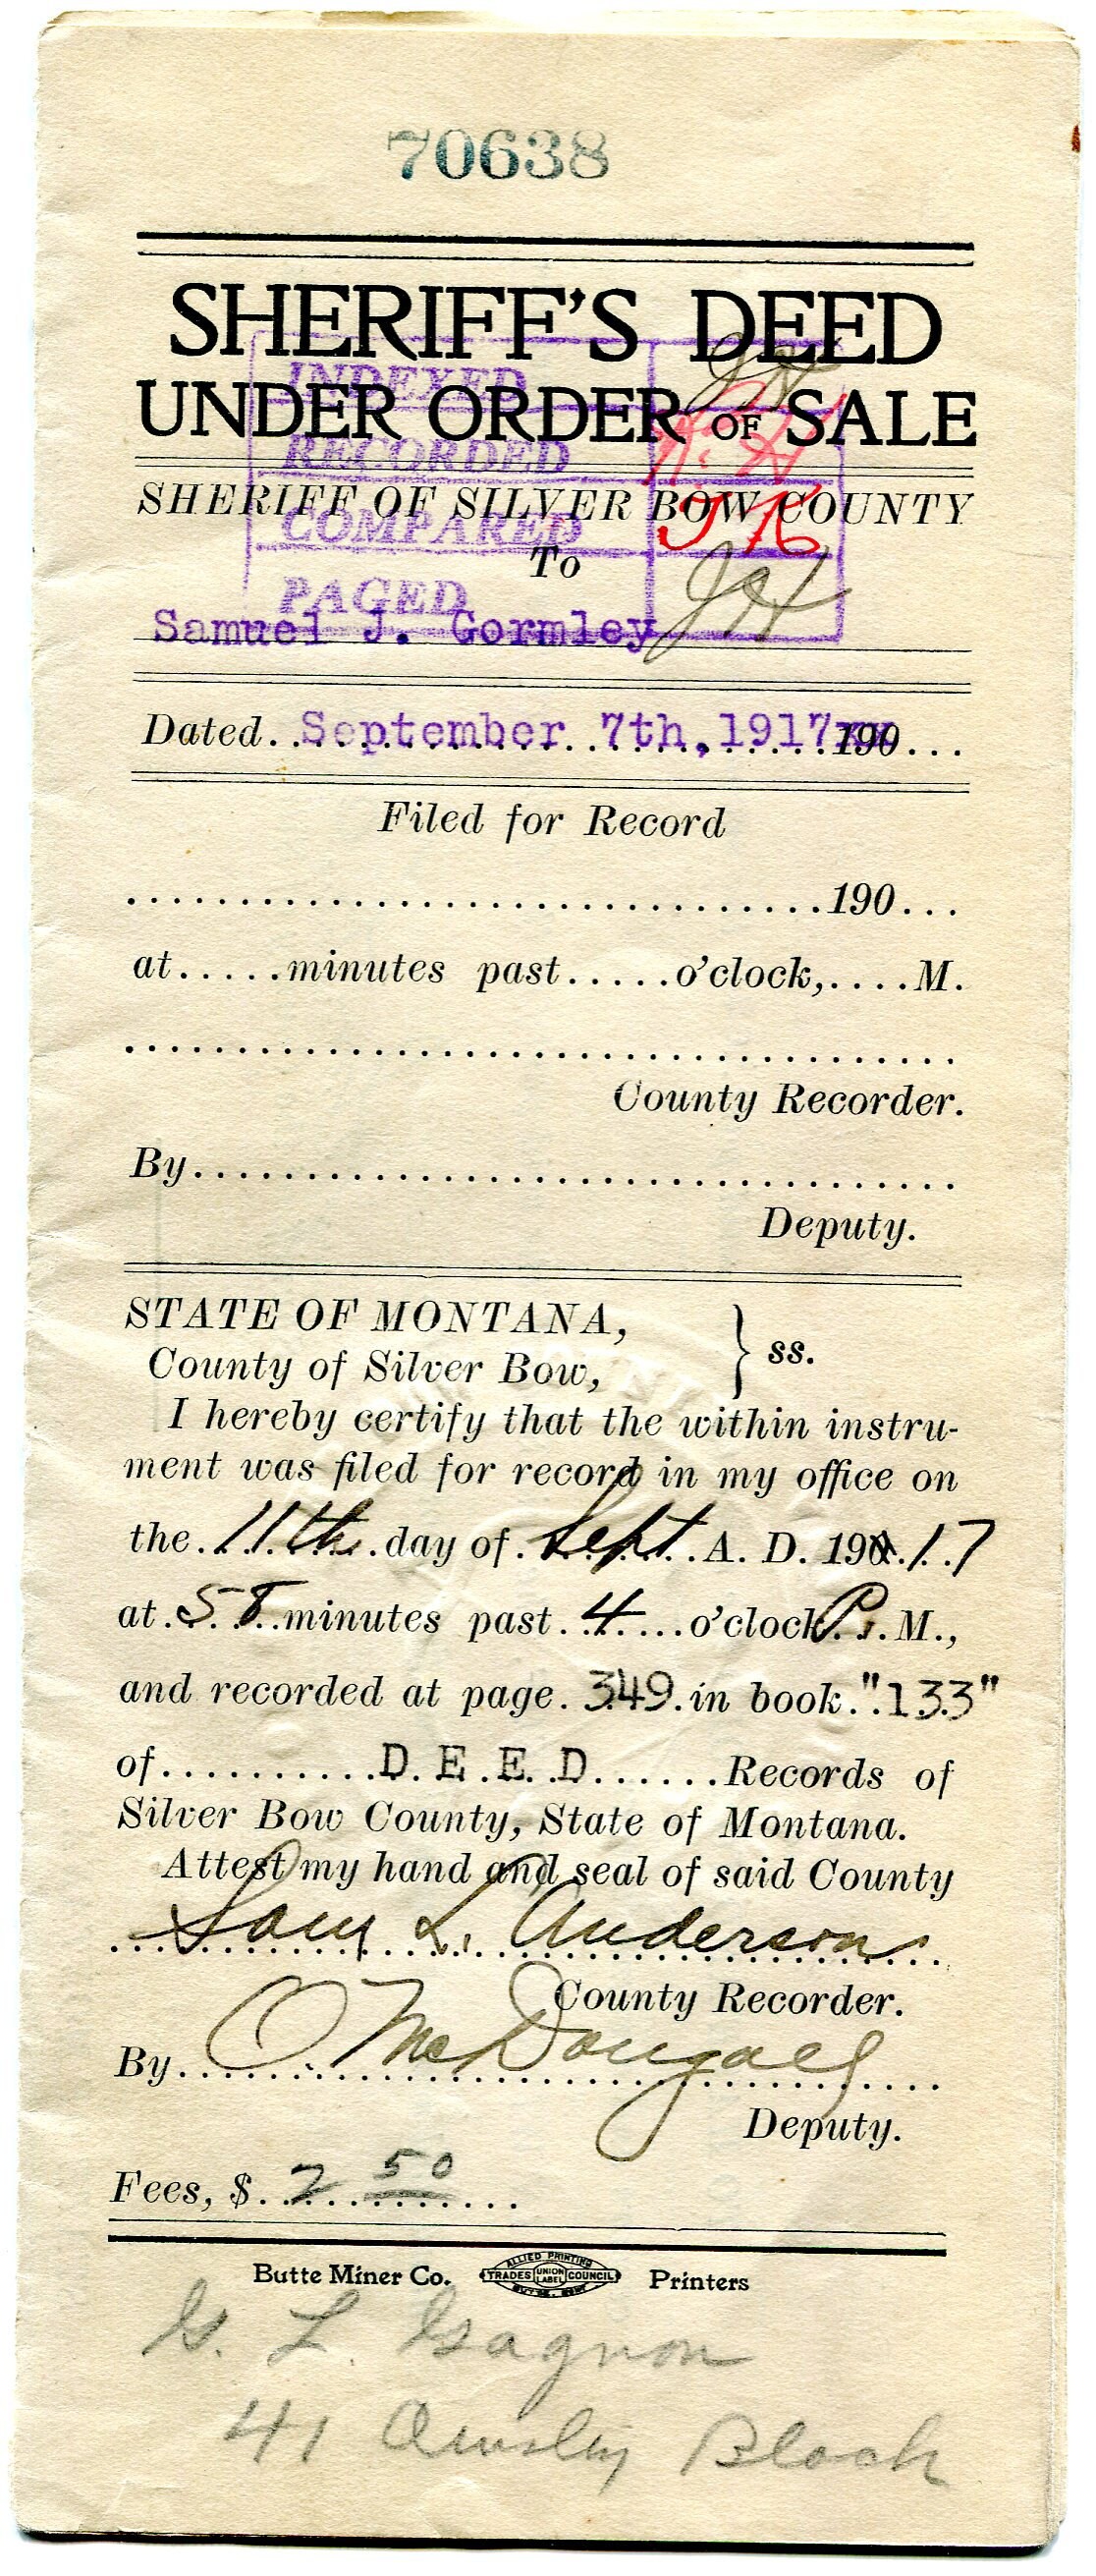 70638
SHERIFF'S DEED
UNDER ORDER OF SALE
INDEXED
RECORDED
COMPARED
PAGED
SHERIFF OF SILVER BOW COUNTY
To
Samuel J. Gormley
Dated September 7th, 1917 190
Filed for Record
190
at minutes past o'clock, M.
County Recorder.
By
Deputy.
STATE OF MONTANA,
County of Silver Bow, } ss.
I hereby certify that the within instru-
ment was filed for record in my office on
the 11th day of Sept A. D. 190 17
at 58 minutes past 4 o'clock P. M.,
and recorded at page 349 in book "133"
of DEED Records of
Silver Bow County, State of Montana.
Attest my hand and seal of said County
Sam L. Anderson
County Recorder.
By O. McDougall
Deputy.
Fees, $ 2 50
Butte Miner Co. ALLIED PRINTING TRADES UNION LABEL COUNCIL BUTTE, MONT. Printers
G. L. Gagnon
41 Owsley Block